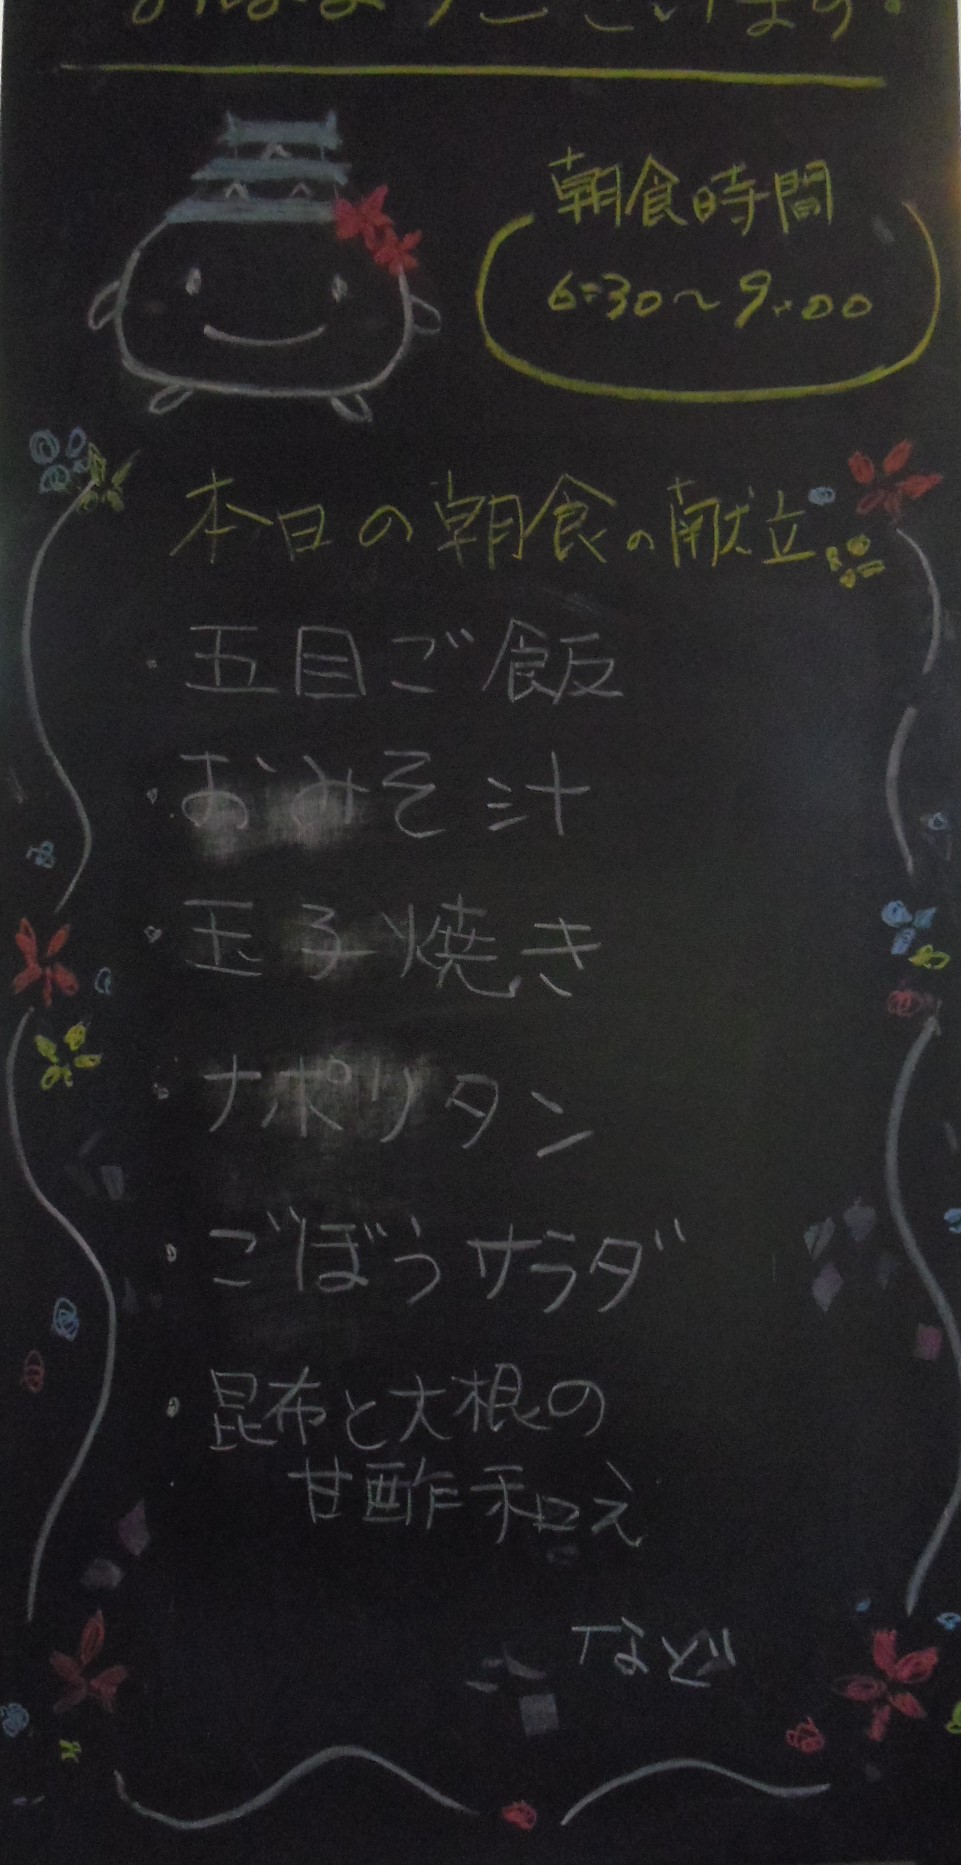 おはようございます。
朝食時間
6:30〜9:00
本日の朝食の献立
・五目ご飯
・おみそ汁
・玉子焼き
・ナポリタン
・ごぼうサラダ
・昆布と大根の
甘酢和え
など